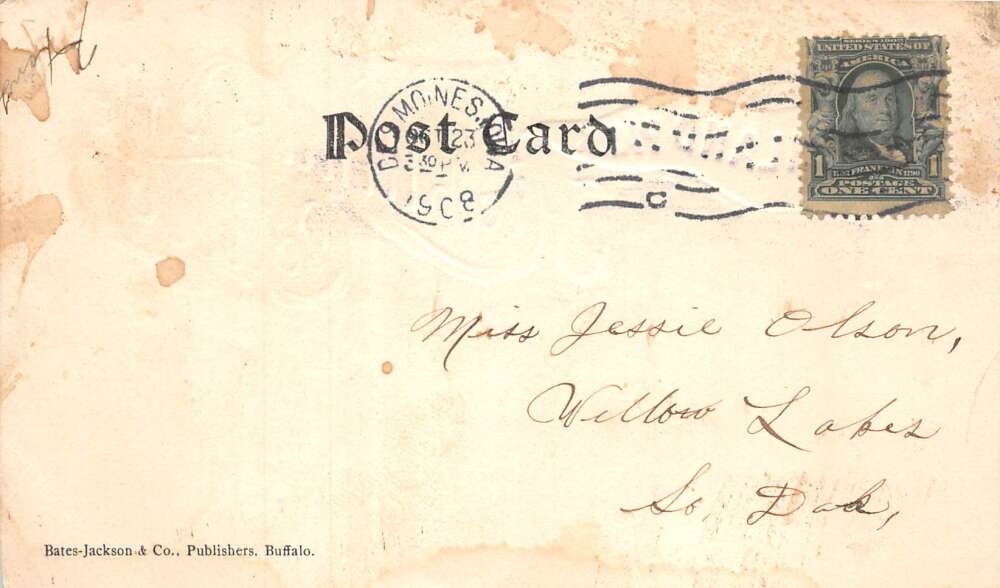 Post Card
DES MOINES, IOWA
23
3 30 P.M.
1908
C
SERIES 1902
UNITED STATES OF
AMERICA
1 1
FRANKLIN 1790
POSTAGE
ONE CENT
Miss Jessie Olson,
Willow Lakes
So, Dak,
Bates-Jackson & Co., Publishers, Buffalo.